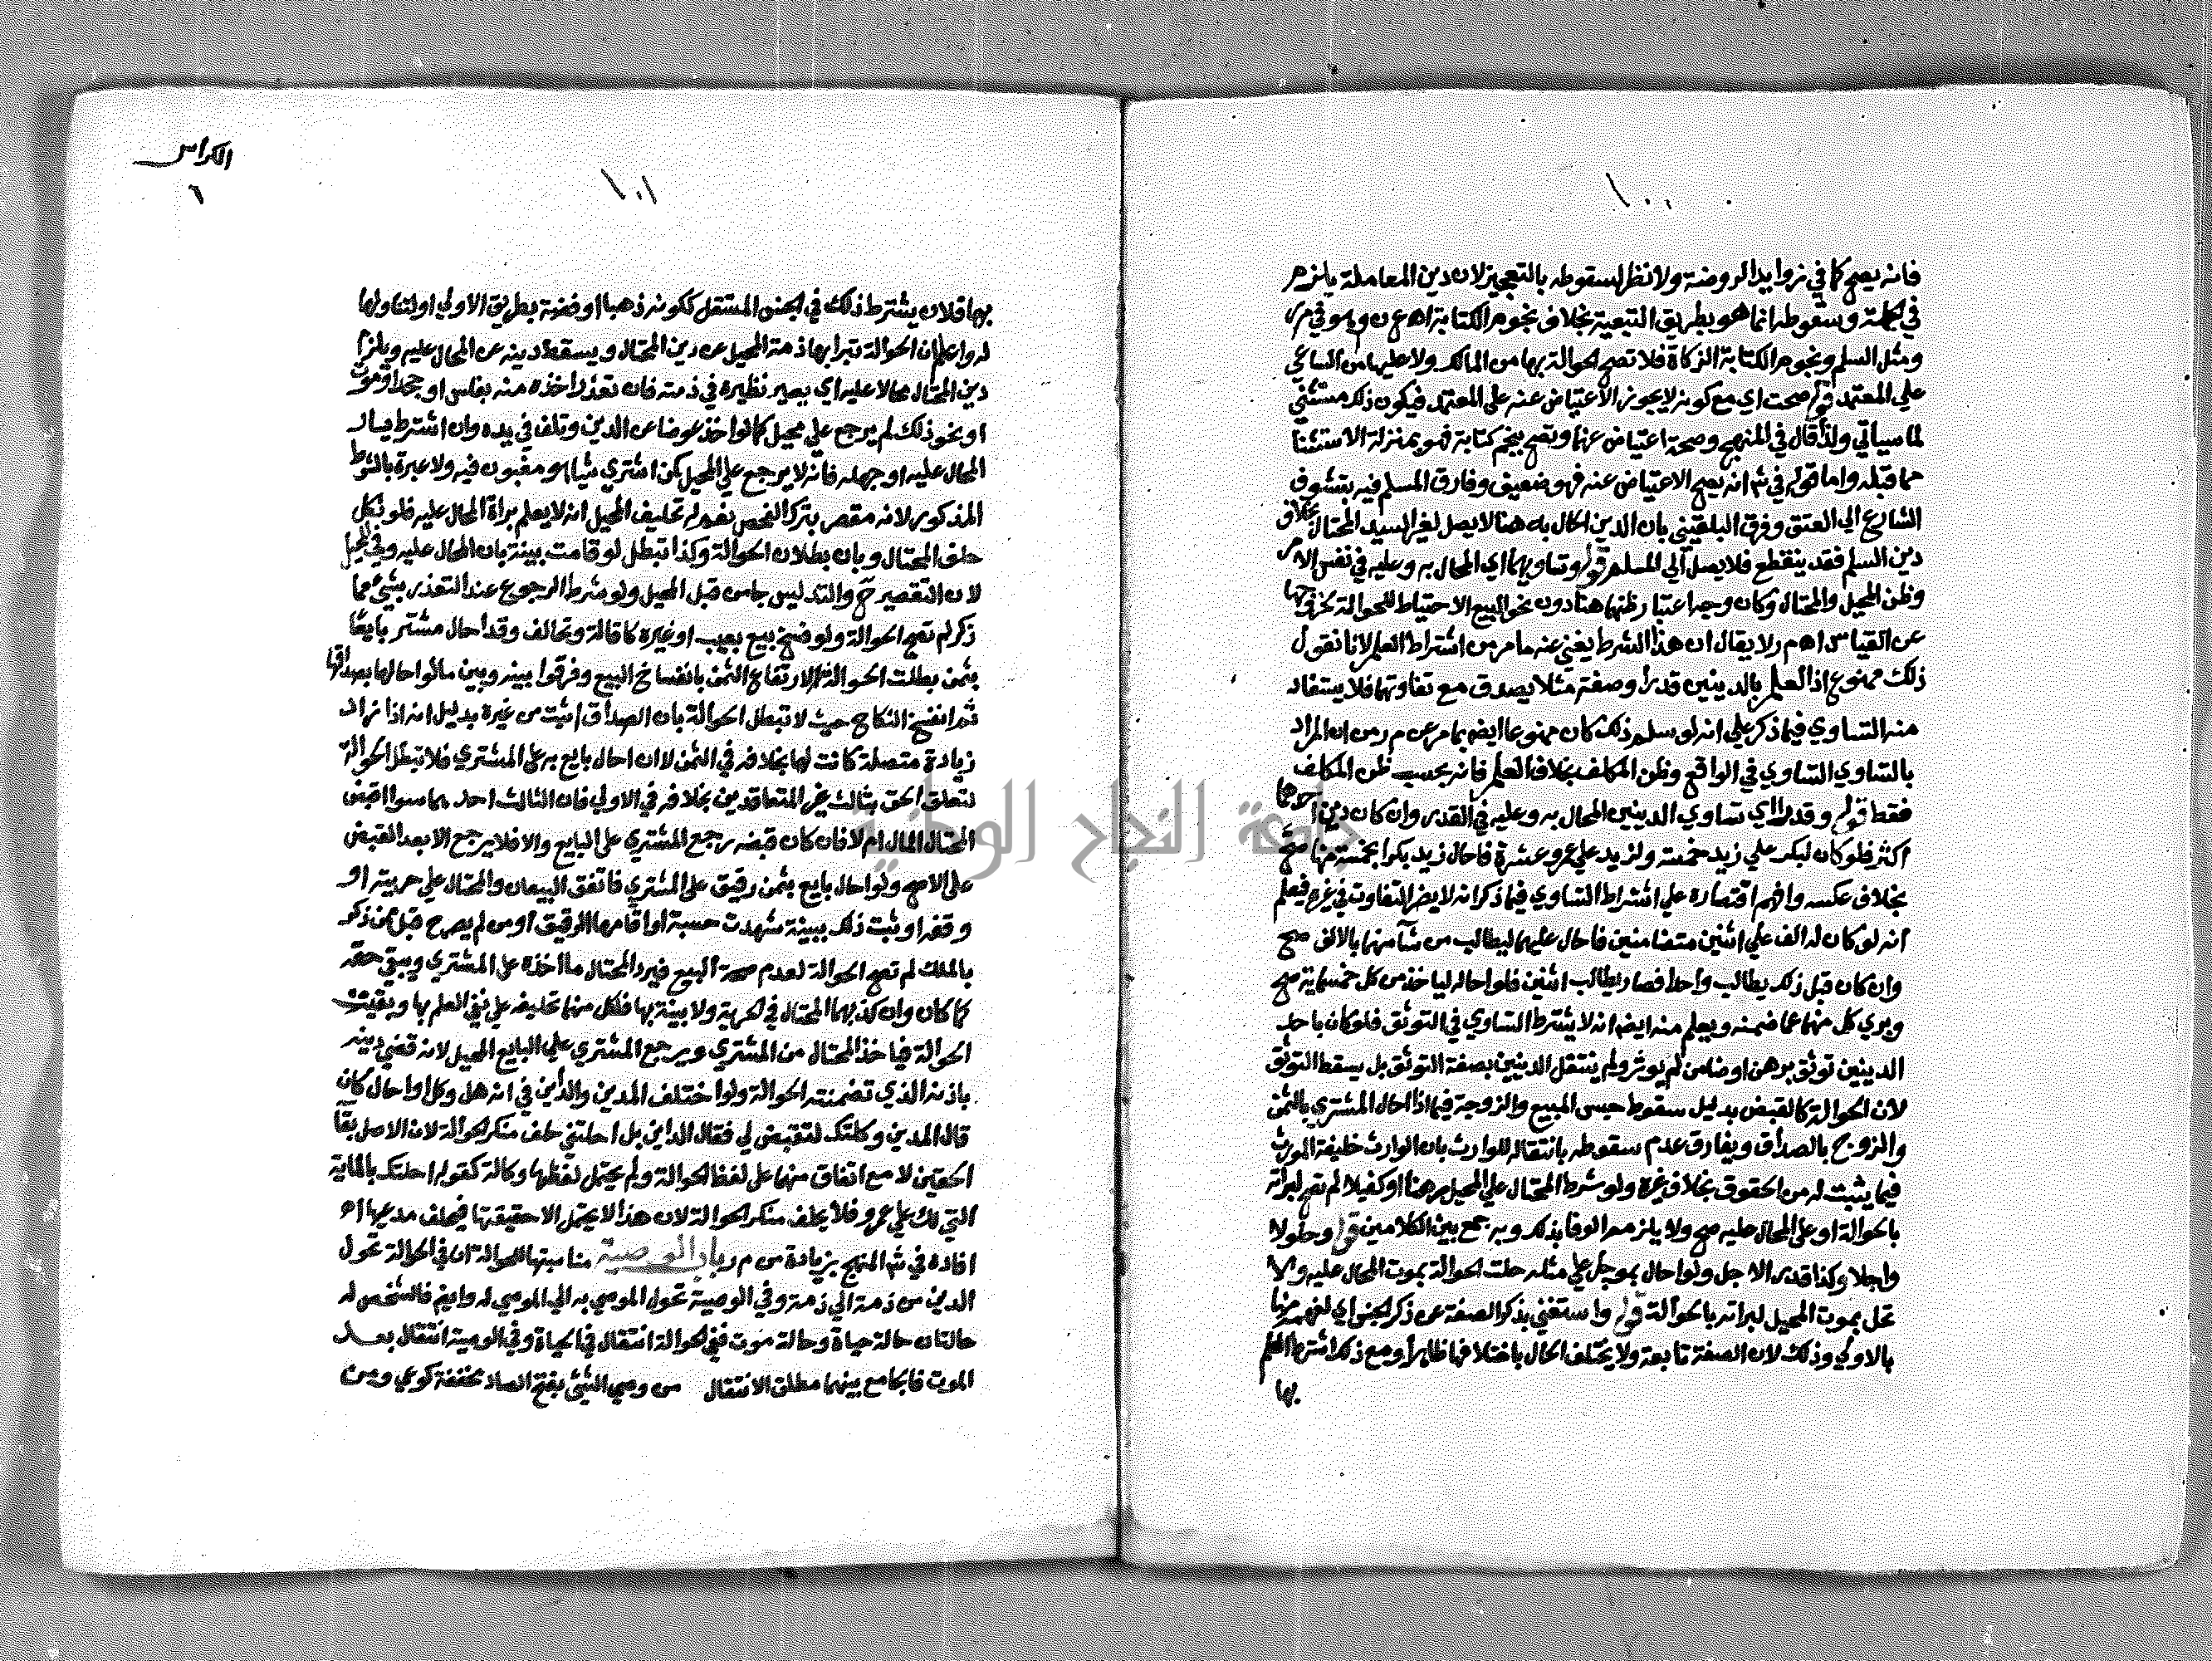 ١٠٠
فانه يصح كما في زوايد الروضة ولا نظر لسقوطه بالتعجيز لان دين المعاملة يلزمه
في الجملة وسقوطه انما هو بطريق التبعية بخلاف نجوم الكتابة اه ع ن وهو في م ر
ومثل السلم ونجوم الكتابة الزكاة فلا تصح الحوالة بها من المالك ولا عليها من الساعي
علي المعتمد قوله صحت اي مع كونه لا يجوز الاعتياض عنه على المعتمد فيكون ذلك مستثنى
لما سياتي ولذا قال في المنهج وصحة اعتياض عنها وتصح بنجم كتابة فهو بمنزلة الاستثنا
مما قبله واما قوله في ش انه يصح الاعتياض عنه فهو ضعيف وفارق المسلم فيه بتشوف
الشارع الي العتق وفرق البلقيني بان الدين المحال به هنا لا يصل لغير السيد المحتال بخلاف
دين السلم فقد ينقطع فلا يصل الي المسلم قوله وتساويهما اي المحال به وعليه في نفس الامر
وظن المحيل والمحتال وكان وجه اعتبار ظنهما هنا دون نحو البيع الاحتياط للحوالة لخروجها
عن القياس اه م ر لا يقال ان هذا الشرط يغني عنه ما مر من اشتراط العلم لانا نقول
ذلك ممنوع اذ العلم بالدينين قدرا وصفة مثلا يصدق مع تفاوتهما فلا يستفاد
منه التساوي فيما ذكر علي انه لو سلم ذلك كان ممنوعا ايضا بما مر عن م ر من ان المراد
بالتساوي التساوي في الواقع وظن المكلف بخلاف العلم فانه بحسب ظن المكلف
فقط قوله وقدرا اي تساوي الدينين المحال به وعليه في القدر وان كان دين احدهما
اكثر فلو كان لبكر علي زيد خمسة ولزيد علي عمرو عشرة فاحال زيد بكرا بخمسة منها صح
بخلاف عكسه وافهم اقتصاره علي اشتراط التساوي فيما ذكر انه لا يضر التفاوت في غيره فيعلم
انه لو كان له الف علي اثنين متضامنين فاحال عليهما ليطالب من شآ منهما بالالف صح
وان كان قبل ذلك يطالب واحدا فصار يطالب اثنين فلو احاله لياخذ من كل خمسماية صح
وبري كل منهما عما ضمنه ويعلم منه ايضا انه لا يشترط التساوي في التوثق فلو كان باحد
الدينين توثق برهن او ضامن لم يوثر ولم ينتقل الدينين بصفة التوثق بل يسقط التوثق
لان الحوالة كالقبض بدليل سقوط حبس المبيع والزوجة فيما اذا احال المشتري بالثمن
والزوج بالصداق ويفارق عدم سقوطه بانتقاله للوارث بان الوارث خليفة المورث
فيما يثبت له من الحقوق بخلاف غيره ولو شرط المحتال علي المحيل رهنا او كفيلا لم تصح لبراته
بالحوالة او على المحال عليه صح ولا يلزمه الوفا بذلك وبه جمع بين الكلامين قوله وحلولا
واجلا وكذا قدر الاجل ولو احال بموجل علي مثله حلت الحوالة بموت المحال عليه ولا
تحل بموت المحيل لبراته بالحوالة قوله واستغني بذكر الصفة عن ذكر الجنس اي لفهمه منها
بالاولي وذلك لان الصفة تابعة ولا يختلف الحال باختلافها ظاهرا ومع ذلك اشترط العلم
بها
الكراس
٦
١٠١
بها فلان يشترط ذلك في الجنس المستقل ككونه ذهبا او فضة بطريق الاولي او لتناولها
له واعلم ان الحوالة تبرا بها ذمة المحيل عن دين المحتال ويسقط دينه عن المحال عليه ويلزم
دين المحتال محالا عليه اي يصير نظيره في ذمته فان تعذر اخذه منه بفلس او جحد او موت
او نحو ذلك لم يرجع علي محيل كما لو اخذ عوضا عن الدين وتلف في يده وان اشترط يسار
المحال عليه او جهله فانه لا يرجع علي المحيل كمن اشتري شيا هو مغبون فيه ولا عبرة بالشرط
المذكور لانه مقصر بترك الفحص نعم له تحليف المحيل انه لا يعلم براة المحال عليه فلو نكل
حلف المحتال وبان بطلان الحوالة وكذا تبطل لو قامت بينة بان المحال عليه وفي المحيل
لان التقصير ح والتدليس جا من قبل المحيل ولو شرط الرجوع عند التعذر بشئ مما
ذكر لم تصح الحوالة ولو فسخ بيع بعيب او غيره كاقالة وتحالف وقد احال مشتر بايعا
بثمن بطلت الحوالة لارتفاع الثمن بانفساخ البيع وفرقوا بينه وبين ما لو احالها بصداقها
ثم انفسخ النكاح حيث لا تبطل الحوالة بان الصداق اثبت من غيره بدليل انه اذا زاد
زيادة متصلة كانت لها بخلافه في الثمن لا ان احال بايع به على المشتري فلا تبطل الحوالة
لتعلق الحق بثالث غير المتعاقدين بخلافه في الاولي فان الثالث احدهما سوا اقبض
المحتال المال ام لا فان كان قبضه رجع المشتري على البايع والا فلا يرجع الا بعد القبض
على الاصح ولو احال بايع بثمن رقيق على المشتري فاتفق البيعان والمحتال علي حريته او
وقفه او ثبت ذلك ببينة شهدت حسبة او اقامها الرقيق او من لم يصرح قبل ممن ذكر
بالملك لم تصح الحوالة لعدم صحة البيع فيرد المحتال ما اخذه على المشتري ويبقي حقه
كما كان وان كذبهما المحتال في الحرية ولا بينة بها فلكل منهما تحليفه على نفي العلم بها وبقيت
الحوالة فياخذ المحتال من المشتري ويرجع المشتري علي البايع المحيل لانه قضي دينه
باذنه الذي تضمنته الحوالة ولو اختلف المدين والداين في انه هل وكل او احال كان
قال المدين وكلتك لتقبض لي فقال الداين بل احلتني حلف منكر الحوالة لان الاصل بقا
الحقين لا مع اتفاق منهما على لفظ الحوالة ولم يحتمل لفظها وكالة كقوله احلتك بالماية
التي لك علي عمرو فلا يحلف منكر الحوالة لان هذا لا يحتمل الا حقيقتها فيحلف مدعيها اه
افاده في ش المنهج بزيادة من م ر باب الوصية مناسبتها للحوالة ان في الحوالة تحول
الدين من ذمة الي ذمة وفي الوصية تحول الموصي به الي الموصي له وايض فالشخص له
حالتان حالة حياة وحالة موت ففي الحوالة انتقال في الحياة وفي الوصية انتقال بعد
الموت فالجامع بينهما مطلق الانتقال من وصي الشئ بفتح الصاد مخففة كوعي ومن
جامعة النجاح الوطنية